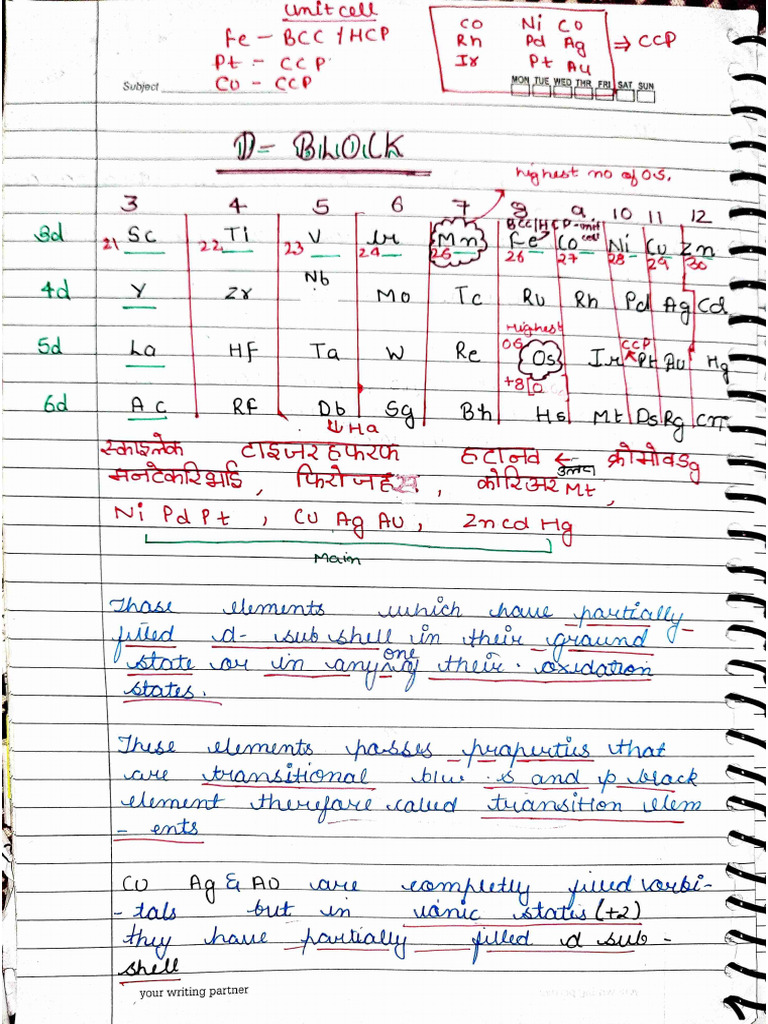 unit cell
Fe - BCC / HCP
Pt - CCP
Cu - CCP
CO Ni CO
Rh Pd Ag ⇒ CCP
Ir Pt AU
Subject
MON TUE WED THR FRI SAT SUN
D- BLOCK
highest no of O.S.
3 4 5 6 7 8 9 10 11 12
BCC/HCP-unit cell
3d Sc Ti V Cr Mn Fe Co Ni Cu Zn
21 22 23 24 25 26 27 28 29 30
4d Y Zr Nb Mo Tc Ru Rh Pd Ag Cd
Highest
OS CCP
5d La HF Ta W Re Os Ir Pt AU Hg
+8
6d AC RF Db Sg Bh Hs Mt Ds Rg Cn
↓↓ Ha
स्काइलेक टाइजर हफरफ हटानव ← क्रोमोवsg
उल्टा
मनटेकरिभाई , फिरोजहs , कोरिअर Mt ,
Ni Pd Pt , CU Ag AU , Zn cd Hg
Main
Those elements which have partially
filled d- sub shell in their ground
state or in any one their oxidation
states.
These elements posses properties that
are transitional blw s and p block
element therefore called transition elem
- ents
CU Ag & AU are completly filled orbi-
- tals but in ionic states (+2)
they have partially filled d sub -
shell
your writing partner